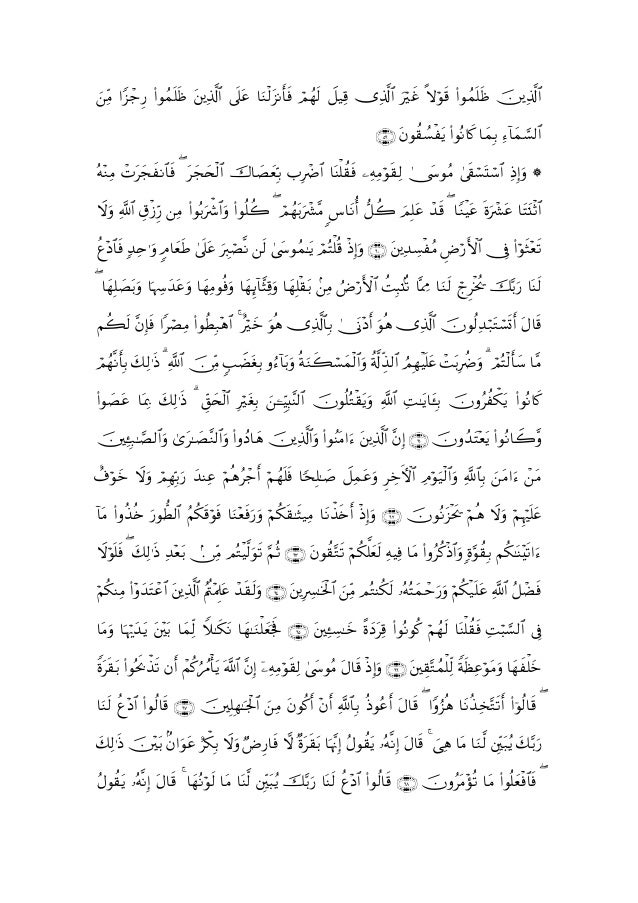 ٱلَّذِينَ ظَلَمُوا۟ قَوْلًا غَيْرَ ٱلَّذِى قِيلَ لَهُمْ فَأَنزَلْنَا عَلَى ٱلَّذِينَ ظَلَمُوا۟ رِجْزًا مِّنَ
ٱلسَّمَآءِ بِمَا كَانُوا۟ يَفْسُقُونَ ﴿٥٩﴾
۞ وَإِذِ ٱسْتَسْقَىٰ مُوسَىٰ لِقَوْمِهِۦ فَقُلْنَا ٱضْرِب بِّعَصَاكَ ٱلْحَجَرَ ۖ فَٱنفَجَرَتْ مِنْهُ
ٱثْنَتَا عَشْرَةَ عَيْنًا ۖ قَدْ عَلِمَ كُلُّ أُنَاسٍ مَّشْرَبَهُمْ ۖ كُلُوا۟ وَٱشْرَبُوا۟ مِن رِّزْقِ ٱللَّهِ وَلَا
تَعْثَوْا۟ فِى ٱلْأَرْضِ مُفْسِدِينَ ﴿٦٠﴾ وَإِذْ قُلْتُمْ يَٰمُوسَىٰ لَن نَّصْبِرَ عَلَىٰ طَعَامٍ وَٰحِدٍ فَٱدْعُ
لَنَا رَبَّكَ يُخْرِجْ لَنَا مِمَّا تُنۢبِتُ ٱلْأَرْضُ مِنۢ بَقْلِهَا وَقِثَّآئِهَا وَفُومِهَا وَعَدَسِهَا وَبَصَلِهَا ۖ
قَالَ أَتَسْتَبْدِلُونَ ٱلَّذِى هُوَ أَدْنَىٰ بِٱلَّذِى هُوَ خَيْرٌ ۚ ٱهْبِطُوا۟ مِصْرًا فَإِنَّ لَكُم
مَّا سَأَلْتُمْ ۗ وَضُرِبَتْ عَلَيْهِمُ ٱلذِّلَّةُ وَٱلْمَسْكَنَةُ وَبَآءُو بِغَضَبٍ مِّنَ ٱللَّهِ ۗ ذَٰلِكَ بِأَنَّهُمْ
كَانُوا۟ يَكْفُرُونَ بِـَٔايَٰتِ ٱللَّهِ وَيَقْتُلُونَ ٱلنَّبِيِّـۧنَ بِغَيْرِ ٱلْحَقِّ ۗ ذَٰلِكَ بِمَا عَصَوا۟
وَّكَانُوا۟ يَعْتَدُونَ ﴿٦١﴾ إِنَّ ٱلَّذِينَ ءَامَنُوا۟ وَٱلَّذِينَ هَادُوا۟ وَٱلنَّصَٰرَىٰ وَٱلصَّٰبِـِٔينَ
مَنْ ءَامَنَ بِٱللَّهِ وَٱلْيَوْمِ ٱلْءَاخِرِ وَعَمِلَ صَٰلِحًا فَلَهُمْ أَجْرُهُمْ عِندَ رَبِّهِمْ وَلَا خَوْفٌ
عَلَيْهِمْ وَلَا هُمْ يَحْزَنُونَ ﴿٦٢﴾ وَإِذْ أَخَذْنَا مِيثَٰقَكُمْ وَرَفَعْنَا فَوْقَكُمُ ٱلطُّورَ خُذُوا۟ مَآ
ءَاتَيْنَٰكُم بِقُوَّةٍ وَٱذْكُرُوا۟ مَا فِيهِ لَعَلَّكُمْ تَتَّقُونَ ﴿٦٣﴾ ثُمَّ تَوَلَّيْتُم مِّنۢ بَعْدِ ذَٰلِكَ ۖ فَلَوْلَا
فَضْلُ ٱللَّهِ عَلَيْكُمْ وَرَحْمَتُهُۥ لَكُنتُم مِّنَ ٱلْخَٰسِرِينَ ﴿٦٤﴾ وَلَقَدْ عَلِمْتُمُ ٱلَّذِينَ ٱعْتَدَوْا۟ مِنكُمْ
فِى ٱلسَّبْتِ فَقُلْنَا لَهُمْ كُونُوا۟ قِرَدَةً خَٰسِـِٔينَ ﴿٦٥﴾ فَجَعَلْنَٰهَا نَكَٰلًا لِّمَا بَيْنَ يَدَيْهَا وَمَا
خَلْفَهَا وَمَوْعِظَةً لِّلْمُتَّقِينَ ﴿٦٦﴾ وَإِذْ قَالَ مُوسَىٰ لِقَوْمِهِۦٓ إِنَّ ٱللَّهَ يَأْمُرُكُمْ أَن تَذْبَحُوا۟ بَقَرَةً
ۖ قَالُوٓا۟ أَتَتَّخِذُنَا هُزُوًا ۖ قَالَ أَعُوذُ بِٱللَّهِ أَنْ أَكُونَ مِنَ ٱلْجَٰهِلِينَ ﴿٦٧﴾ قَالُوا۟ ٱدْعُ لَنَا
رَبَّكَ يُبَيِّن لَّنَا مَا هِىَ ۚ قَالَ إِنَّهُۥ يَقُولُ إِنَّهَا بَقَرَةٌ لَّا فَارِضٌ وَلَا بِكْرٌ عَوَانٌۢ بَيْنَ ذَٰلِكَ
ۖ فَٱفْعَلُوا۟ مَا تُؤْمَرُونَ ﴿٦٨﴾ قَالُوا۟ ٱدْعُ لَنَا رَبَّكَ يُبَيِّن لَّنَا مَا لَوْنُهَا ۚ قَالَ إِنَّهُۥ يَقُولُ